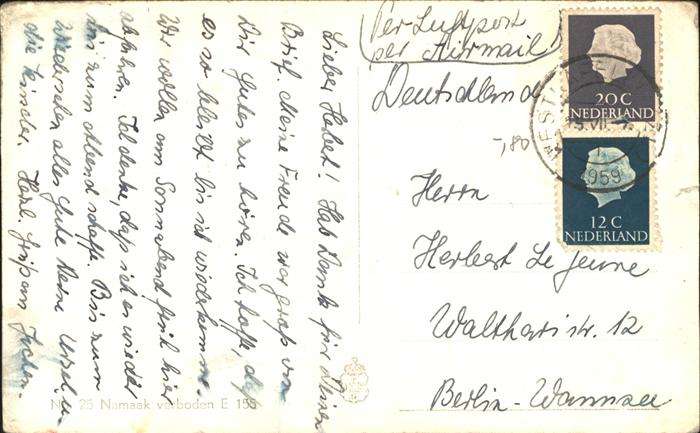 Lieber Herbert! Hab Dank für Deinen
Brief. Meine Freude war groß von
Dir Gutes zu hören. Ich hoffe, daß
es so bleibt bis ich wiederkomme.
Wir wollen am Sonnabend früh hier
abfahren. Ich denke, daß ich es wieder
bis zum Abend schaffe. Bis zum
Wiedersehen alles Gute Deine Ursel u.
die Kinder. Herzl. Grüße an
Per Luftpost
per Airmail
Deutschland
-,80
Herrn
Herbert Le Jeune
Waltharistr. 12
Berlin-Wannsee
20 C
NEDERLAND
12 C
NEDERLAND
1959
25 Namaak verboden E 155